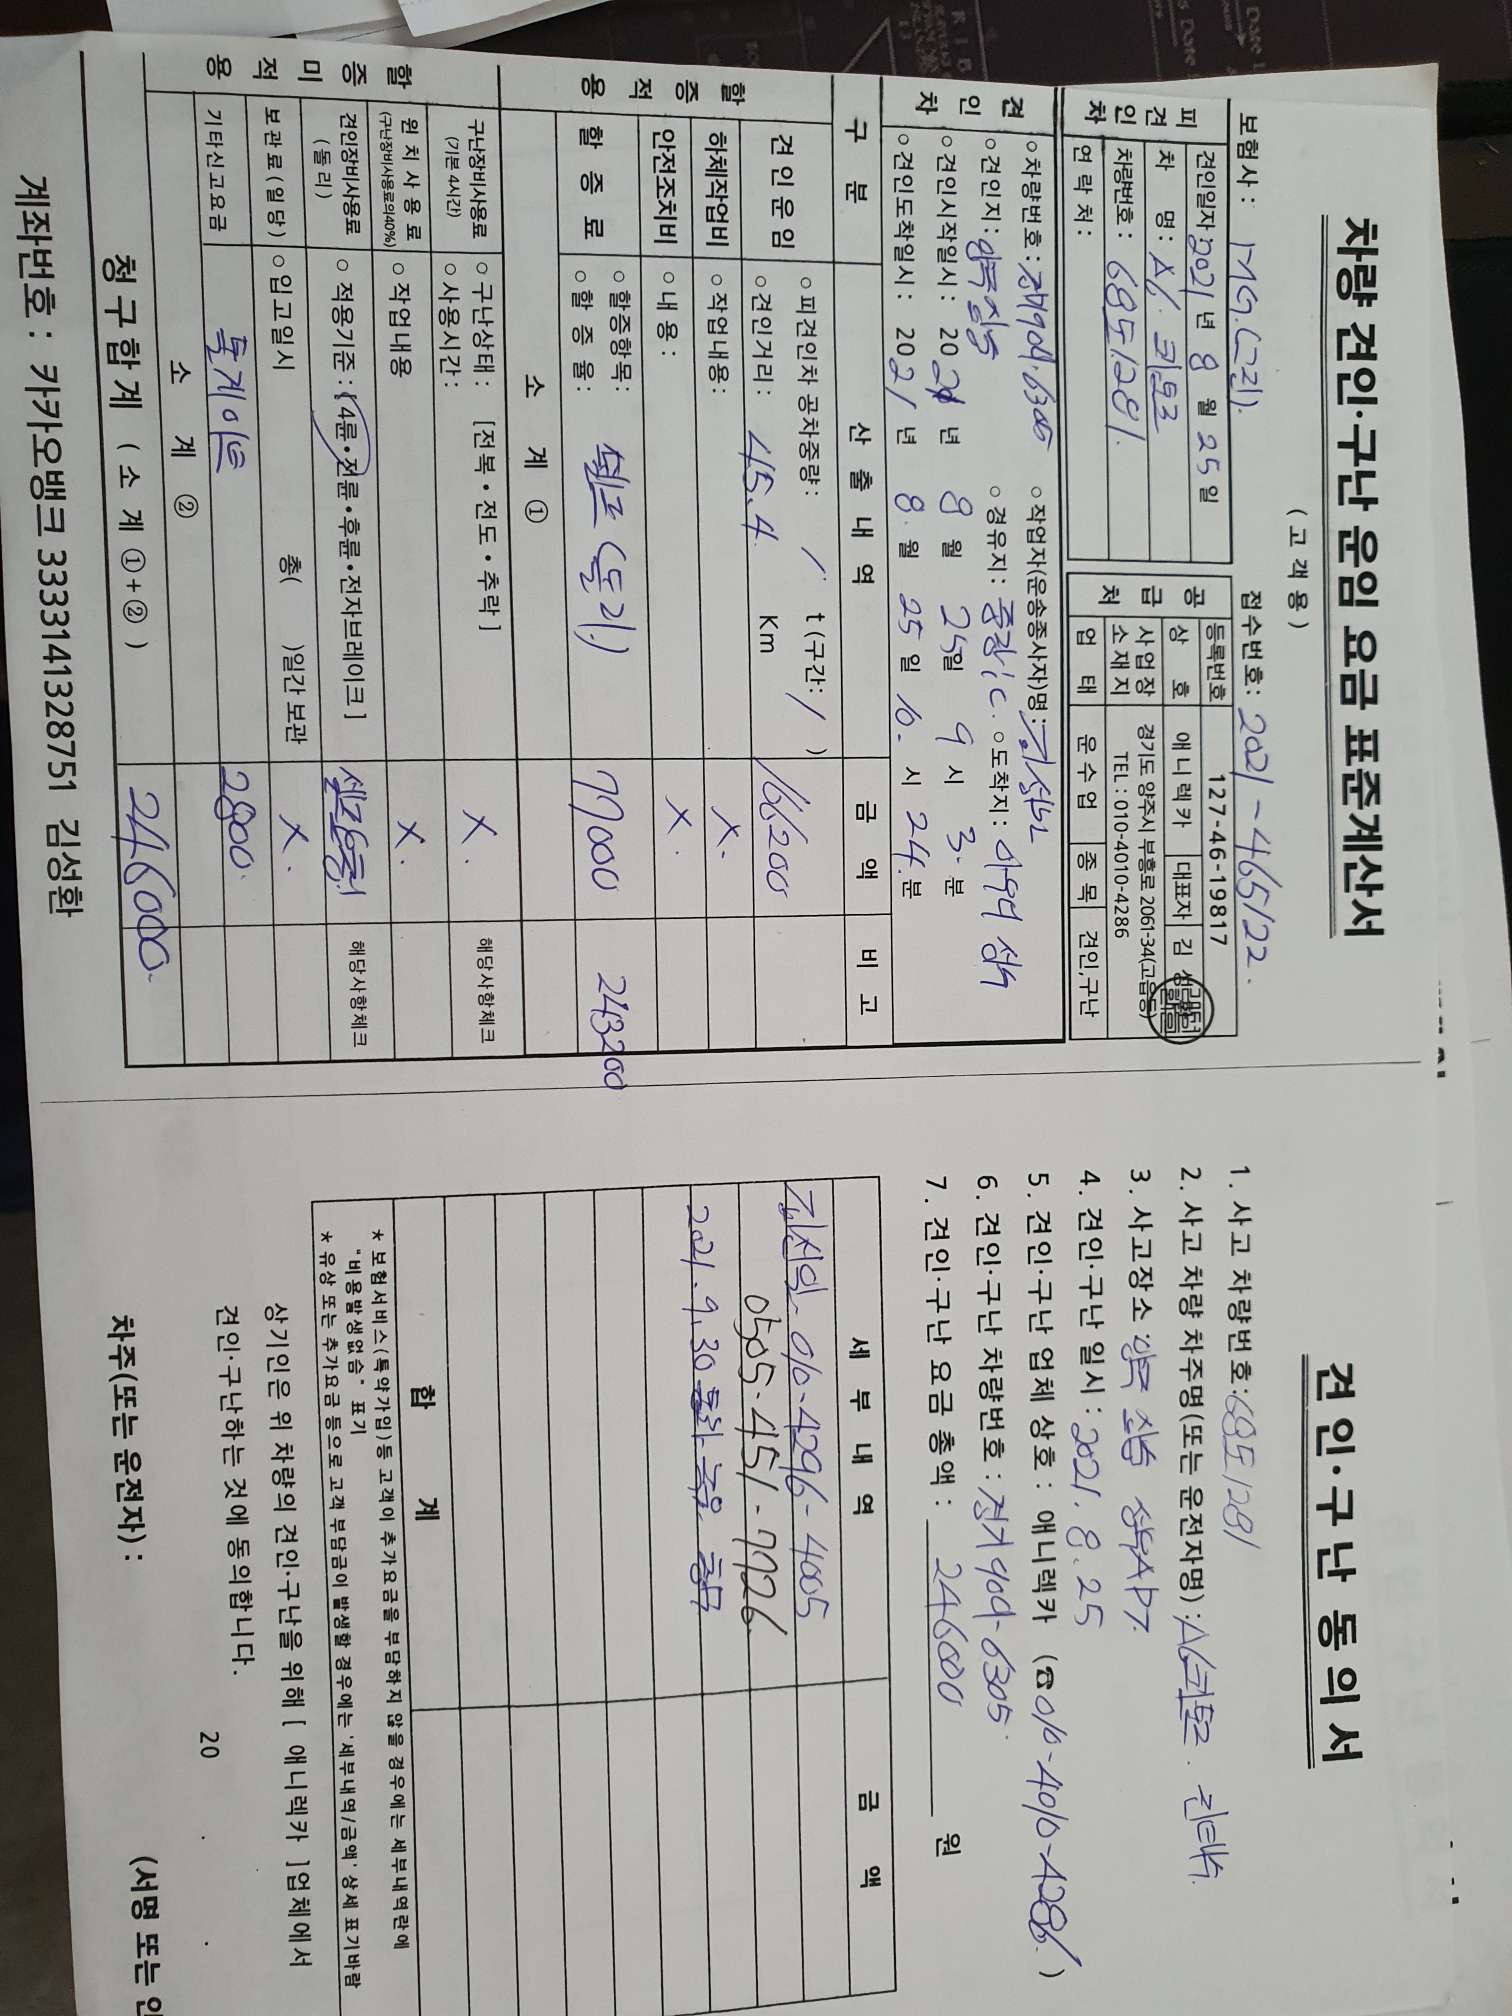 차량 견인·구난 운임 요금 표준계산서
( 고 객 용 )
보험사 : MG.
접수번호: 2021-465122.
피 견 인 차
견인일자 2021 년 8 월 25 일
차 명 : A6.
차량번호 : 68도1281.
연 락 처 :
공 급 처
등록번호 127-46-19817
상 호 애니렉카 대표자 김
사업장 소재지 경기도 양주시 부흥로 2061-34(고읍동)
TEL : 010-4010-4286
업 태 운수업 종목 견인,구난
견 인 차
○차량번호 : ○작업자(운송종사자)명 :
○견인지 : ○경유지: ic. ○도착지:
○견인시작일시 : 2021 년 8 월 25일 9 시 3. 분
○견인도착일시 : 2021 년 8. 월 25 일 10. 시 24.분
구 분 산 출 내 역 금 액 비 고
할 증 적 용
견 인 운 임 ○피견인차 공차중량: / t (구간: / ) 166200
○견인거리: 45.4 Km
하체작업비 ○작업내용: X.
안전조치비 ○내 용 : X.
할 증 료 ○할증항목: (돌리) 77000 243200
○할 증 율:
소 계 ①
할 증 미 적 용
구난장비사용료 (기본 4시간) ○구난상태 : [전복 • 전도 • 추락 ] X 해당사항체크
○사용시간 :
윈 치 사 용 료 (구난장비사용료의40%) ○작업내용 X.
견인장비사용료 ( 돌 리 ) ○적용기준 : [4륜•전륜•후륜•전자브레이크 ] 해당사항체크
보 관 료 ( 일 당 ) ○입고일시 총( )일간 보관 X.
기타신고요금 톨게이트 2800
소 계 ②
청 구 합 계 ( 소 계 ① + ② ) 246000.
계좌번호 : 카카오뱅크 3333141328751 김성환
견인·구난 동의서
1. 사고 차량번호: 68도1281
2. 사고 차량 차주명(또는 운전자명) : A6
3. 사고장소 : APT.
4. 견인·구난 일시 : 2021. 8. 25
5. 견인·구난 업체 상호 : 애니렉카 (☎010-4010-4286. )
6. 견인·구난 차량번호 : 경기 6305.
7. 견인·구난 요금 총액 : 246000 원
세 부 내 역 금 액
010-4296-4005
0505-451-7726.
2021. 9. 30
합 계
* 보험서비스(특약가입)등 고객이 추가요금을 부담하지 않을 경우에는 세부내역란에
"비용발생없음" 표기
* 유상 또는 추가요금 등으로 고객 부담금이 발생할 경우에는 '세부내역/금액' 상세 표기바람
상기인은 위 차량의 견인·구난을 위해 [ 애니렉카 ]업체에서
견인·구난하는 것에 동의합니다.
20 . .
차주(또는 운전자) : (서명 또는